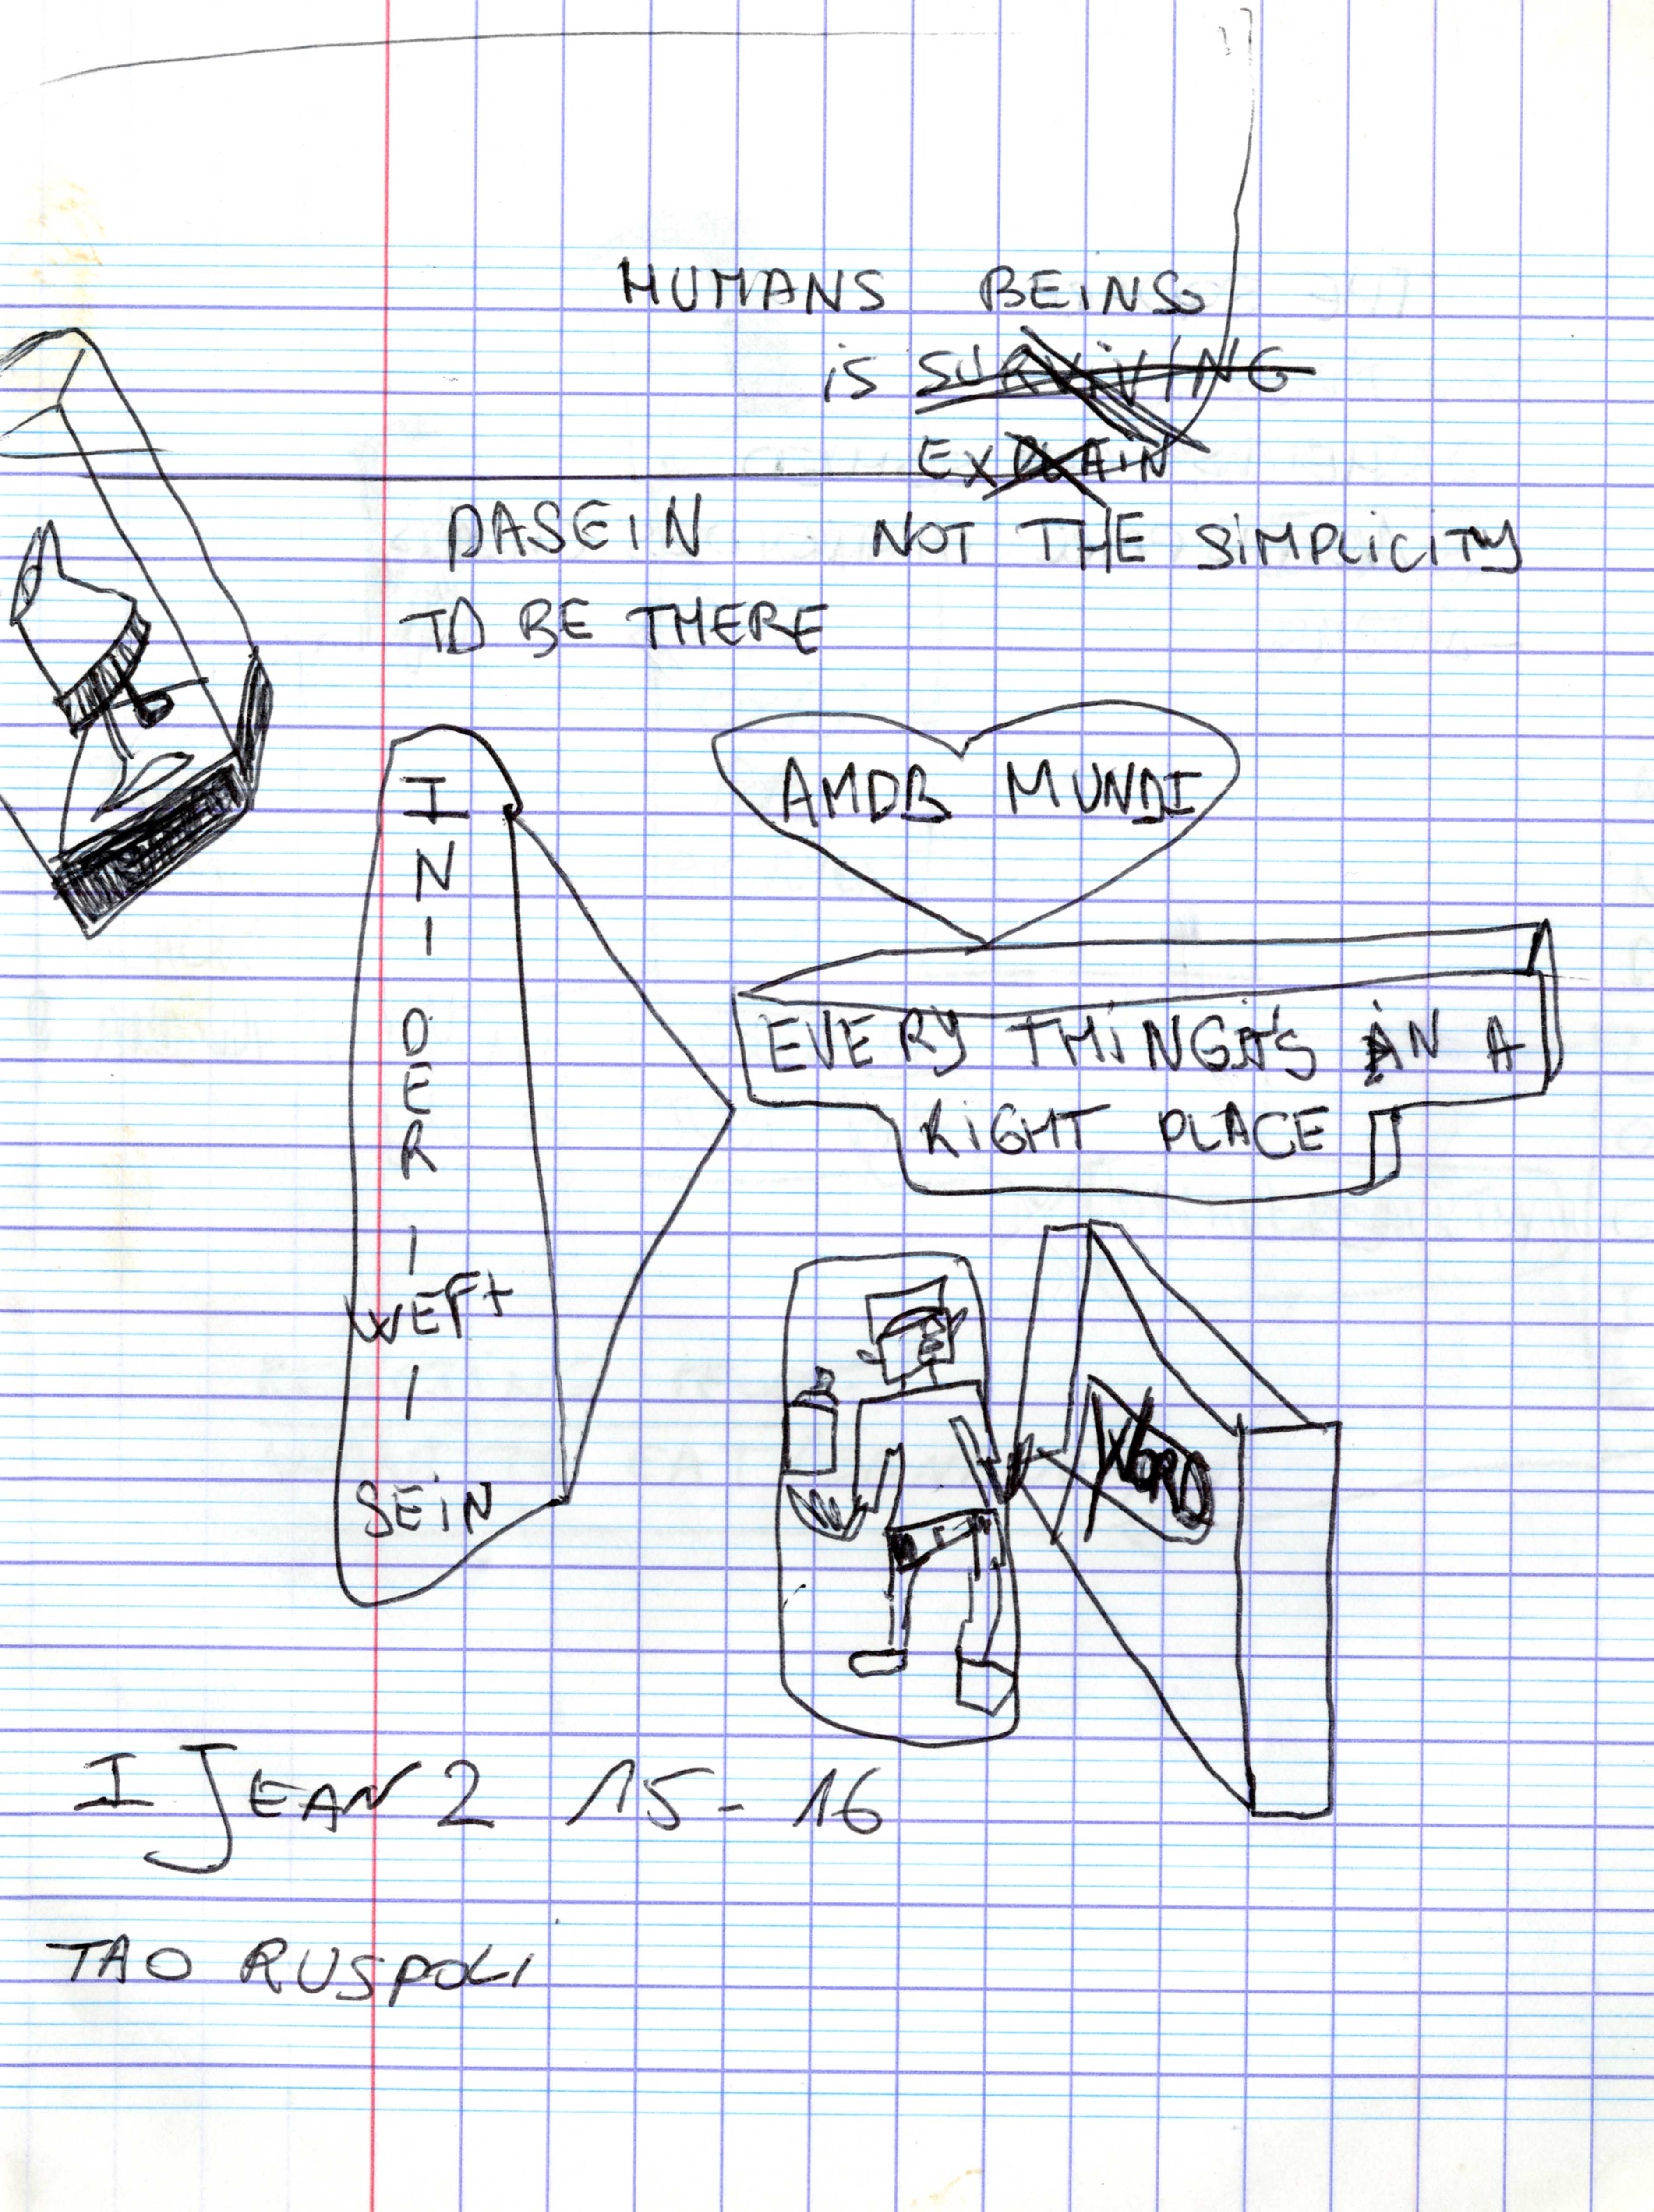 HUMANS BEING
is SURViViNG
EXPLAiN
DASEIN NOT THE SiMPLiCiTY
TO BE THERE
AMOR MUNDI
IN - DER - WEFt - SEiN
EVERY THiNG iS iN A
RiGHT PLACE
WORD
I JEAN 2 15-16
TAO RUSPOLI